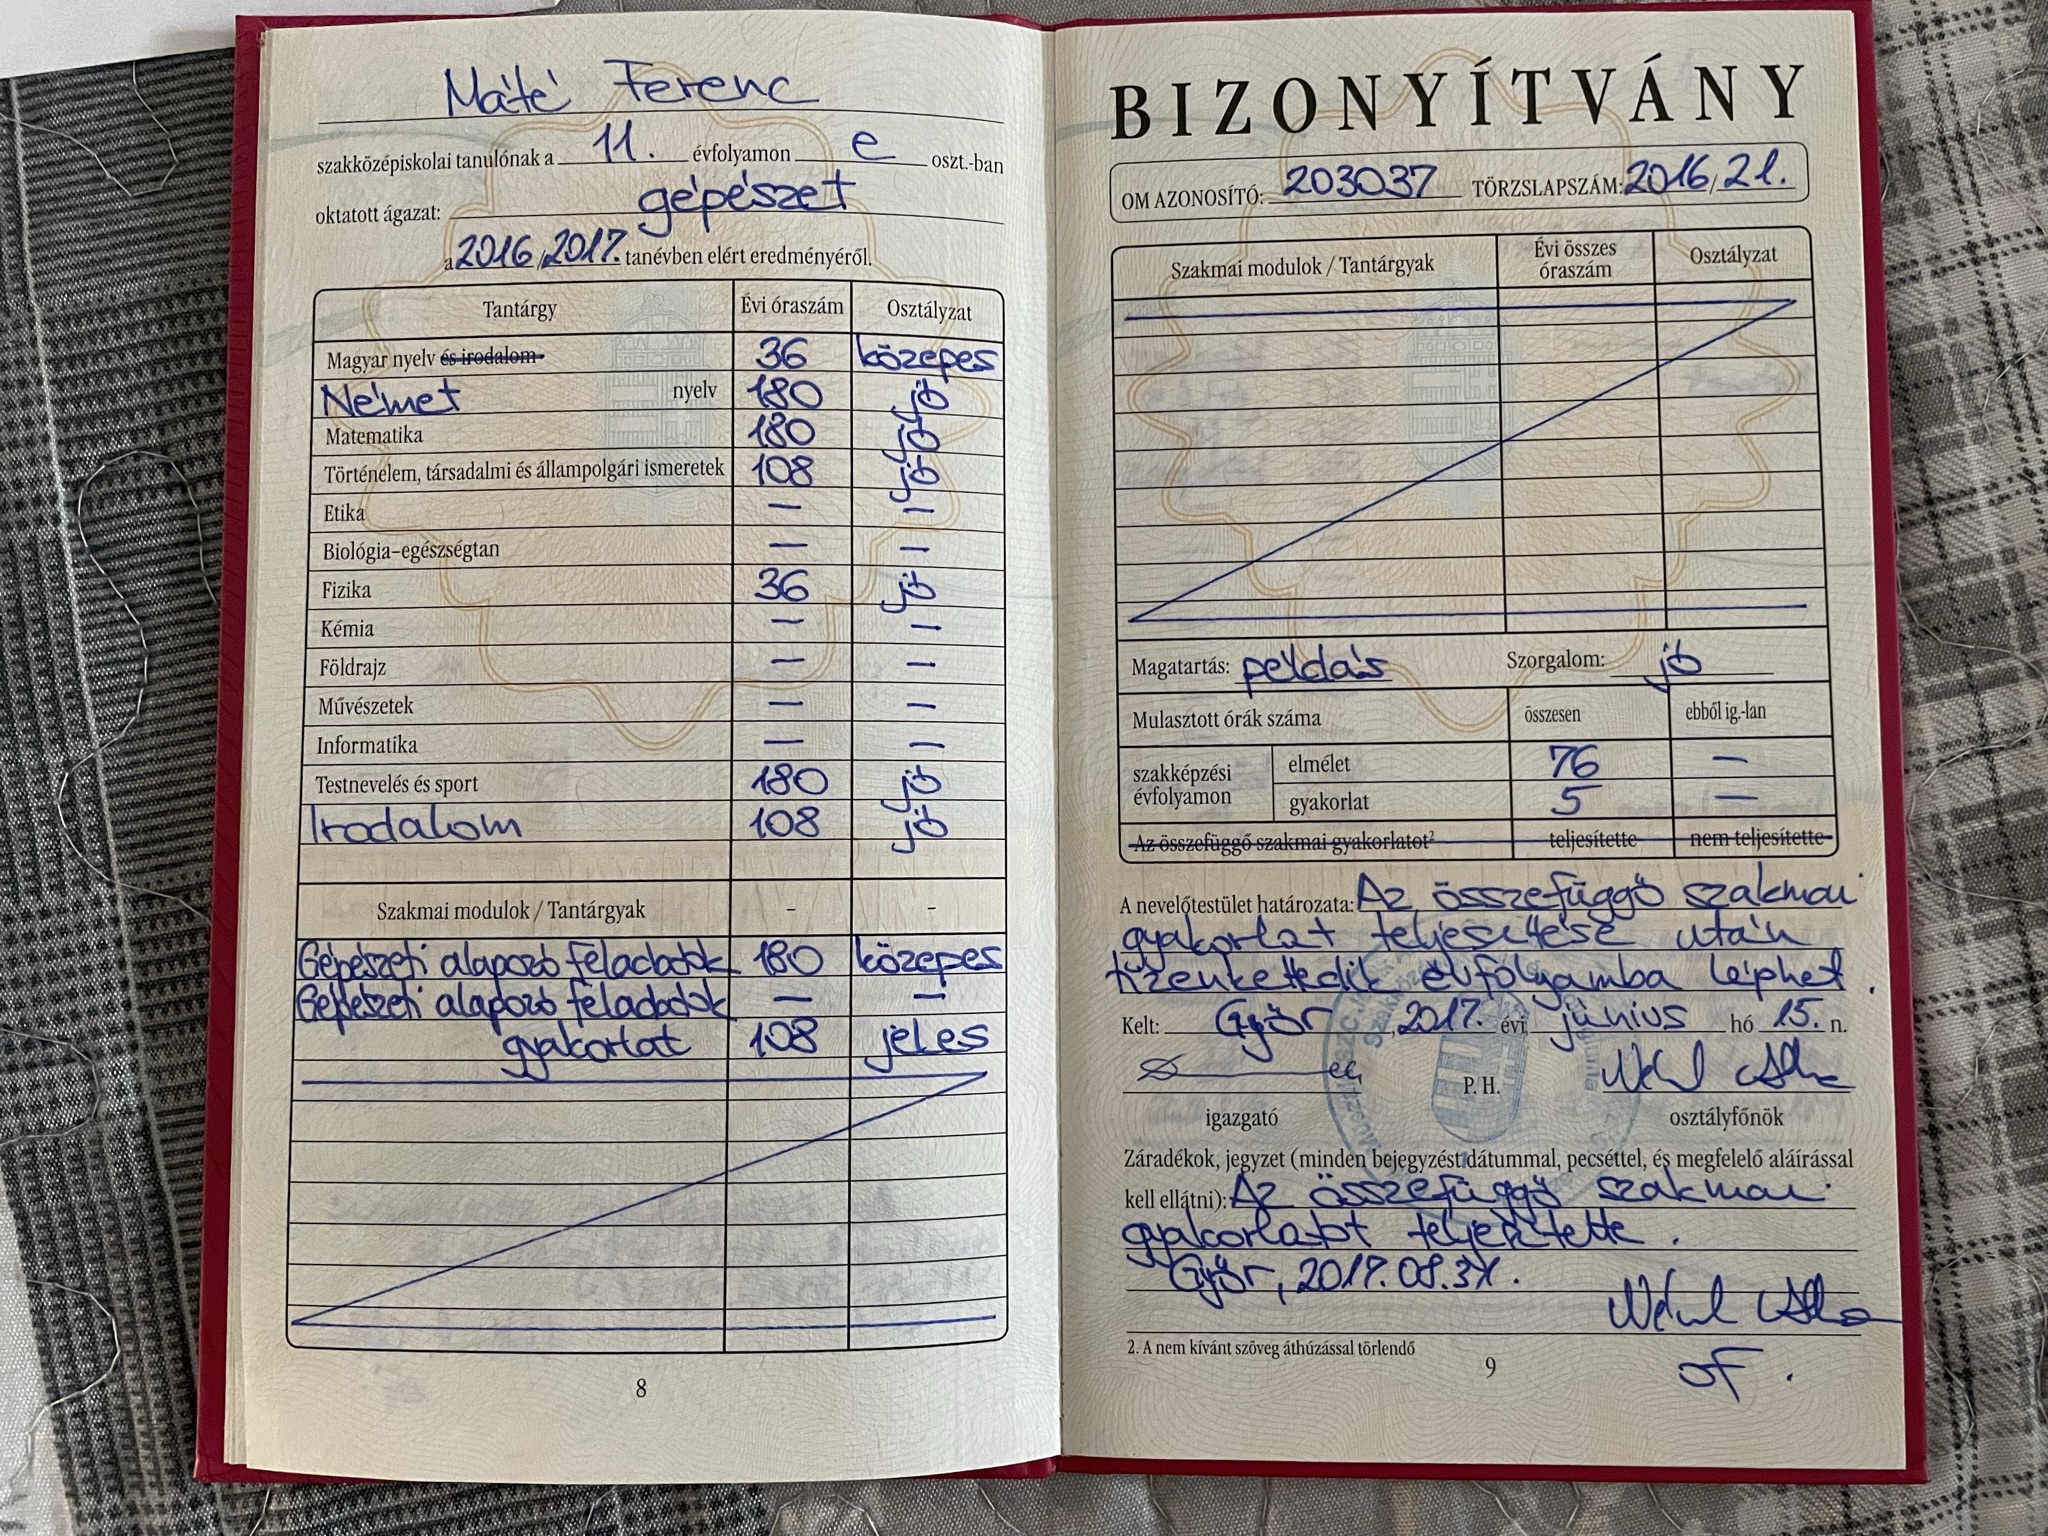 Máté Ferenc
szakközépiskolai tanulónak a 11. évfolyamon e oszt.-ban
oktatott ágazat: gépészet
a 2016/2017. tanévben elért eredményéről.
Tantárgy Évi óraszám Osztályzat
Magyar nyelv és irodalom 36 közepes
Német nyelv 180 jó
Matematika 180 jó
Történelem, társadalmi és állampolgári ismeretek 108 jó
Etika — —
Biológia–egészségtan — —
Fizika 36 jó
Kémia — —
Földrajz — —
Művészetek — —
Informatika — —
Testnevelés és sport 180 jó
Irodalom 108 jó
Szakmai modulok / Tantárgyak – –
Gépészeti alapozó feladatok 180 közepes
Gépészeti alapozó feladatok — —
gyakorlat 108 jeles
8
BIZONYÍTVÁNY
OM AZONOSÍTÓ: 203037 TÖRZSLAPSZÁM: 2016/21.
Szakmai modulok / Tantárgyak Évi összes óraszám Osztályzat
Magatartás: példás Szorgalom: jó
Mulasztott órák száma összesen ebből ig.-lan
szakképzési évfolyamon elmélet 76 —
gyakorlat 5 —
Az összefüggő szakmai gyakorlatot² teljesítette nem teljesítette
A nevelőtestület határozata: Az összefüggő szakmai
gyakorlat teljesítése után
tizenkettedik évfolyamba léphet.
Kelt: Győr, 2017. évi június hó 15. n.
P. H.
igazgató osztályfőnök
Záradékok, jegyzet (minden bejegyzést dátummal, pecséttel, és megfelelő aláírással
kell ellátni): Az összefüggő szakmai
gyakorlatot teljesítette.
Győr, 2017.08.31.
of.
2. A nem kívánt szöveg áthúzással törlendő
9